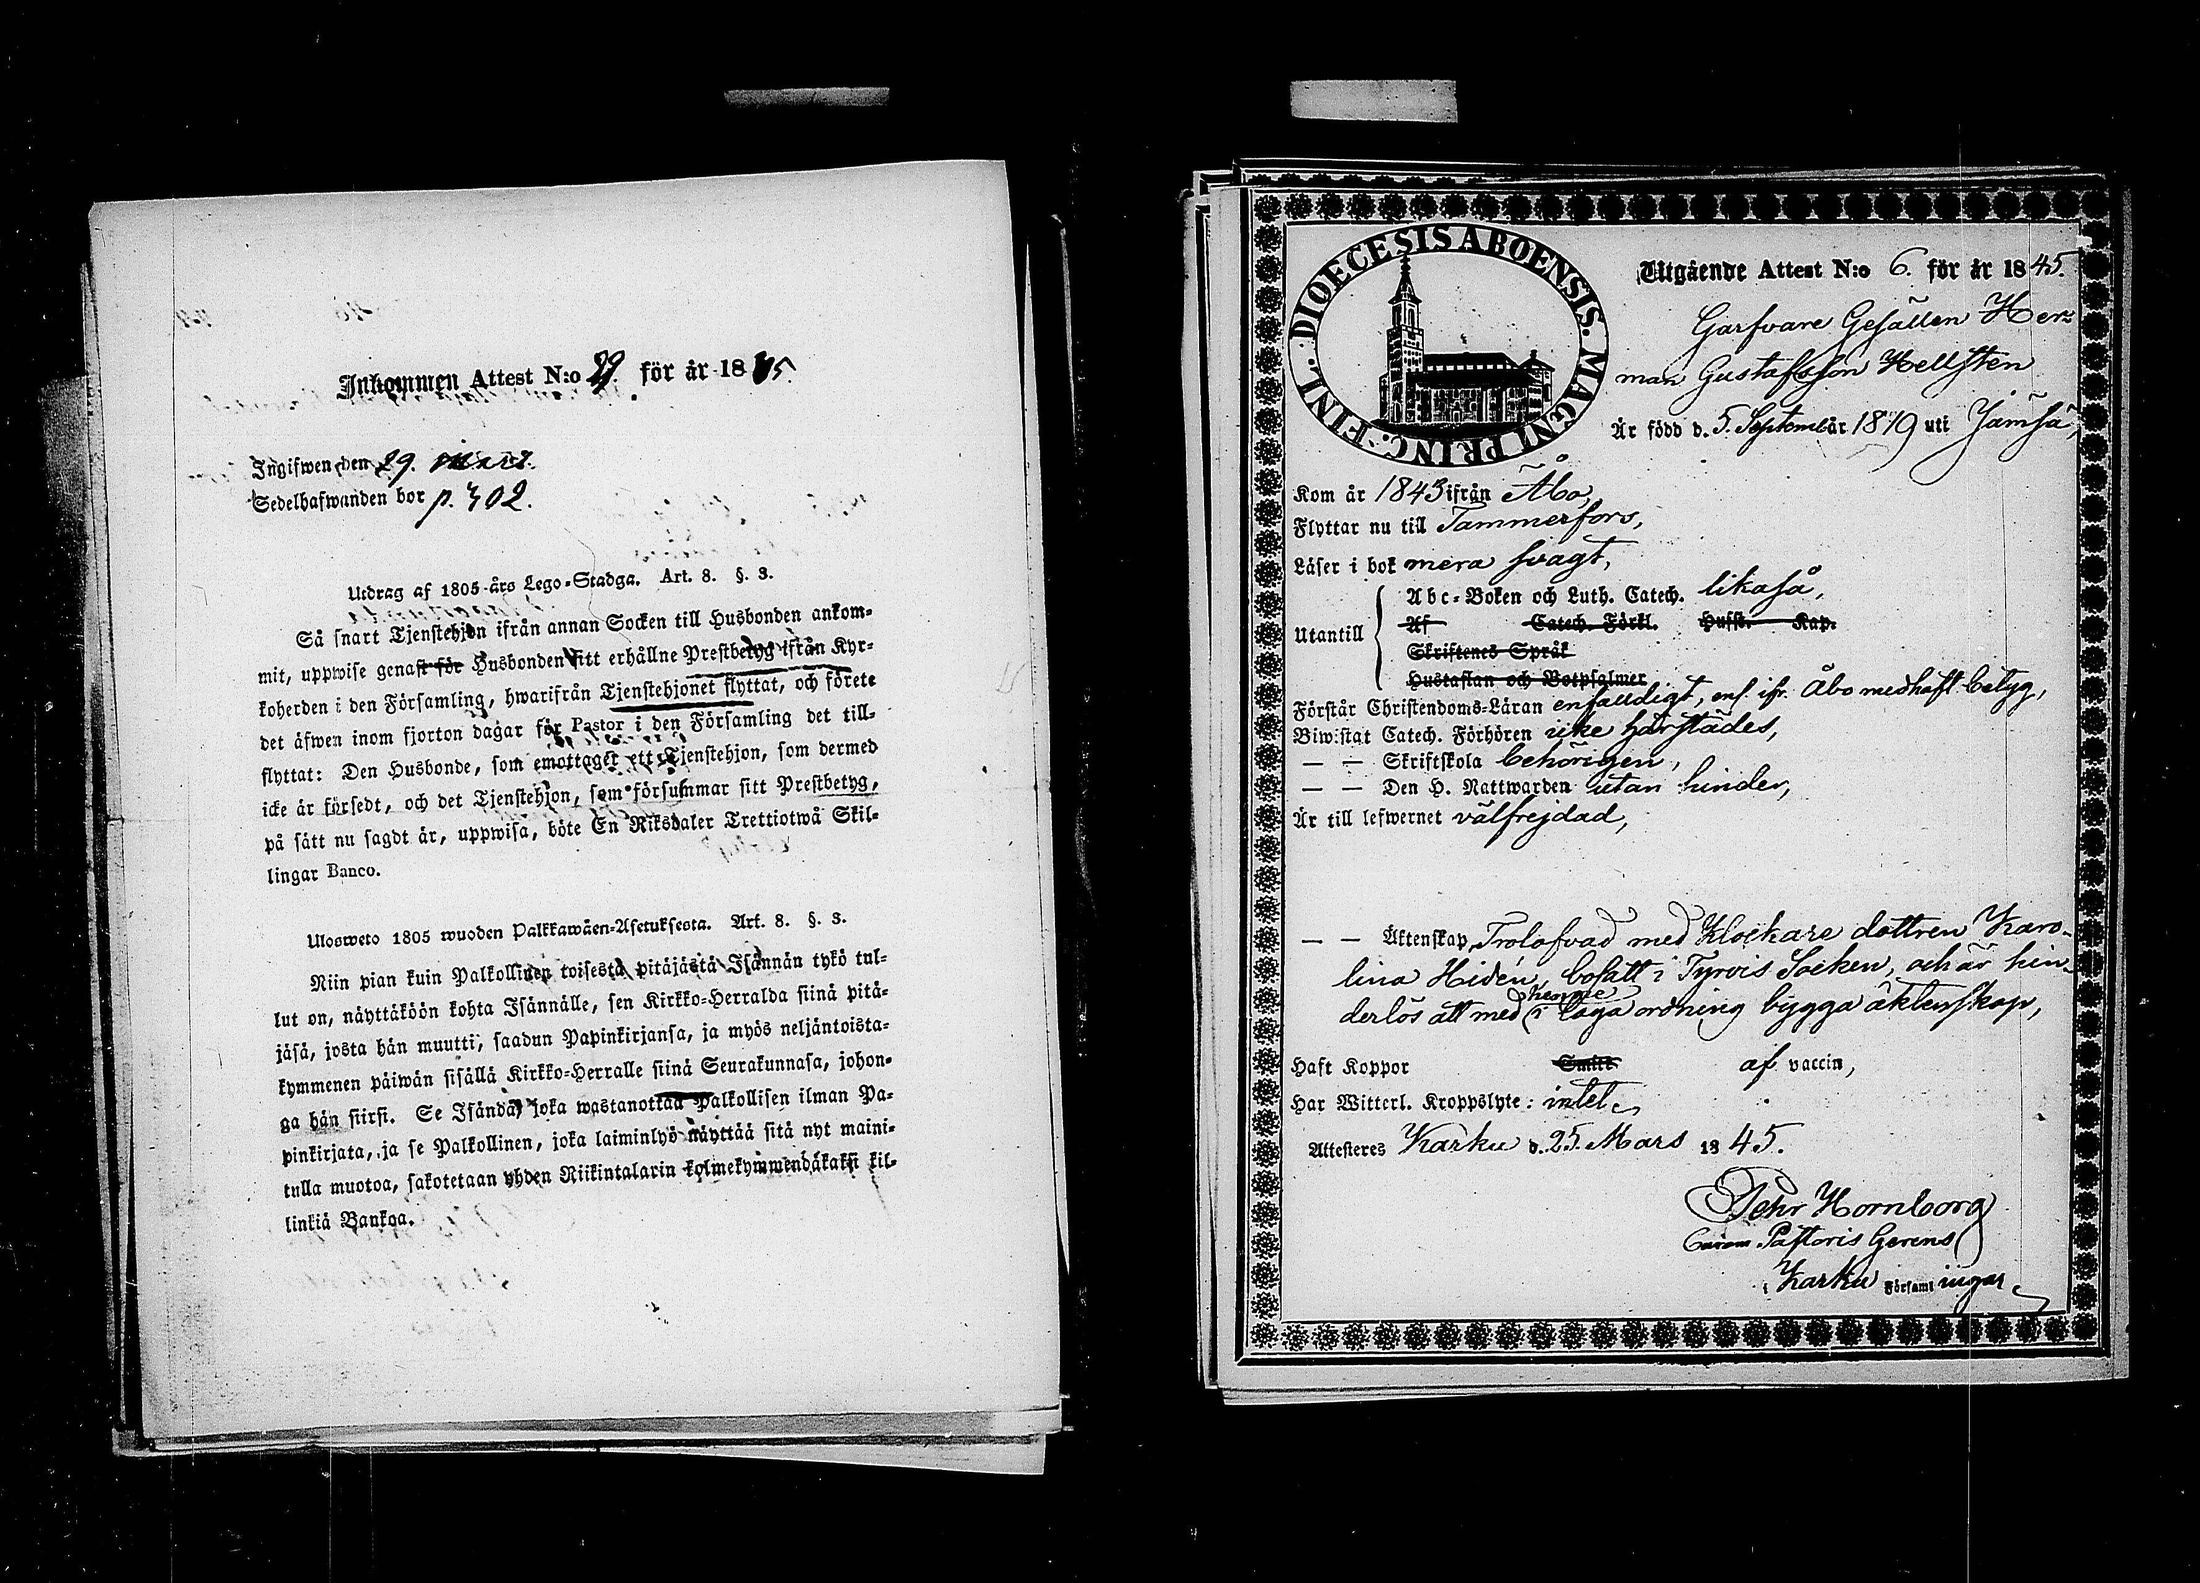 Inkommen Attest N:o 29. för år 1845.
Ingifwen den 29. mars.
Sedelhafwanden bor p. 302.
Utdrag af 1805-års Lego-Stadga. Art. 8. §. 3.
Så snart Tjenstehjon ifrån annan Socken till Husbonden ankom-
mit, uppwise genast för Husbonden sitt erhållne Prestbetyg ifrån Kyr-
koherden i den Församling, hwarifrån Tjenstehjonet flyttat, och förete
det äfwen inom fjorton dagar för Pastor i den Församling det till-
flyttat: Den Husbonde, som emottager ett Tjenstehjon, som dermed
icke är försedt, och det Tjenstehjon, som försummar sitt Prestbetyg,
på sätt nu sagdt är, uppwisa, böte En Riksdaler Trettiotwå Skil-
lingar Banco.
Ulosweto 1805 wuoden Palkkawäen-Asetuksesta. Art. 8. §. 3.
Niin pian kuin Palkollinen toisesta pitäjästä Isännän tykö tul-
lut on, näyttäköön kohta Isännälle, sen Kirkko-Herralda siinä pitä-
jäsä, josta hän muutti, saadun Papinkirjansa, ja myös neljäntoista-
kymmenen päiwän sisällä Kirkko-Herralle siinä Seurakunnasa, johon-
ga hän siirsi. Se Isändä, joka wastanottaa Palkollisen ilman Pa-
pinkirjata, ja se Palkollinen, joka laiminlyö näyttää sitä nyt maini-
tulla muotoa, sakotetaan yhden Riikintalarin kolmekymmendäkaksi kil-
linkiä Bankoa.
DIOECESIS ABOENSIS. MAGNI PRINC. FINL.
Utgående Attest N:o 6. för år 1845.
Garfvare Gesällen Her-
man Gustafsson Hellsten
Är född d. 5. September 1819 uti Jämsä,
Kom år 1843 ifrån Åbo,
Flyttar nu till Tammerfors,
Läser i bok mera svagt,
Utantill
Abc-Boken och Luth. Catech. likaså,
Af Catech. Förkl. Husst. Kap.
Skriftenes Språk
Hustaflan och Botpsalmer
Förstår Christendoms-Läran enfaldigt, enl. ifr. Åbo medhaft betyg,
Biwistat Catech. Förhören icke härstädes,
— — Skriftskola behörigen,
— — Den H. Nattwarden utan hinder,
Är till lefwernet välfrejdad,
— — Äktenskap, Trolofvad med Klockare dottren Karo-
lina Hidén, bosatt i Tyrvis Socken, och är hin-
derlös att med henne i laga ordning bygga äktenskap,
Haft Koppor Smitt af vaccin,
Har Witterl. Kroppslyte: intet.
Attesteres Karku d. 25. Mars 1845.
Pehr Hornborg
Curam Pastoris Gerens
i Karku Församlingar